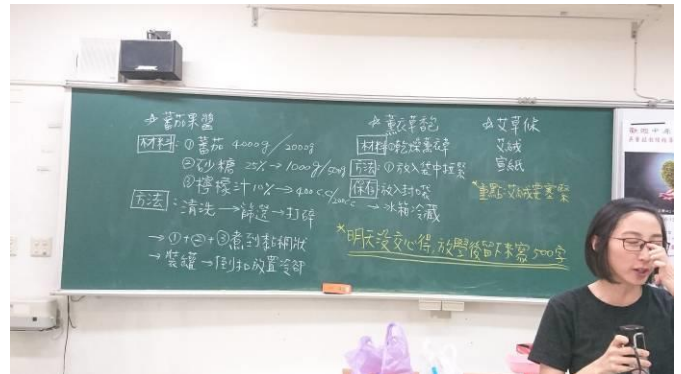 ☆蕃茄果醬
材料:①蕃茄 4000g/2000g
②砂糖 25%→1000g/500g
③檸檬汁10%→400cc/200cc
方法:清洗→篩選→打碎
→①+②+③煮到黏稠狀
→裝罐→倒扣放置冷卻
☆薰衣草包
材料:①乾燥薰衣草
方法:①放入袋中扭緊
保存:放入封口袋
→冰箱冷藏
☆艾草條
艾絨
宣紙
*重點:艾絨要塞緊
*明天沒交心得,放學後留下來寫500字